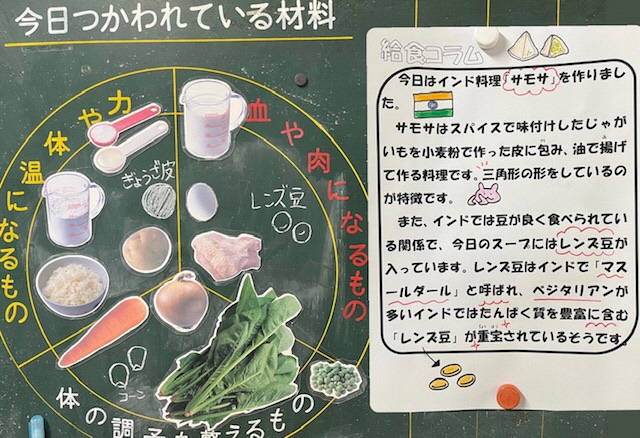 今日つかわれている材料
力や体温になるもの
血や肉になるもの
体の調子を整えるもの
ぎょうざ皮
レンズ豆
コーン
給食コラム
今日はインド料理「サモサ」を作りまし
た。
サモサはスパイスで味付けしたじゃが
いもを小麦粉で作った皮に包み、油で揚げ
て作る料理です。三角形の形をしているの
が特徴です。
また、インドでは豆が良く食べられてい
る関係で、今日のスープにはレンズ豆が
入っています。レンズ豆はインドで「マス
ールダール」と呼ばれ、ベジタリアンが
多いインドではたんぱく質を豊富に含む
「レンズ豆」が重宝されているそうです。